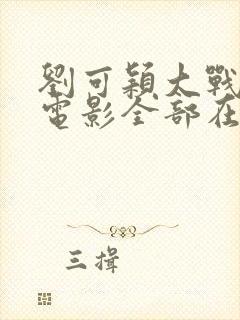 劉可穎太戰
電影全部在
三揖